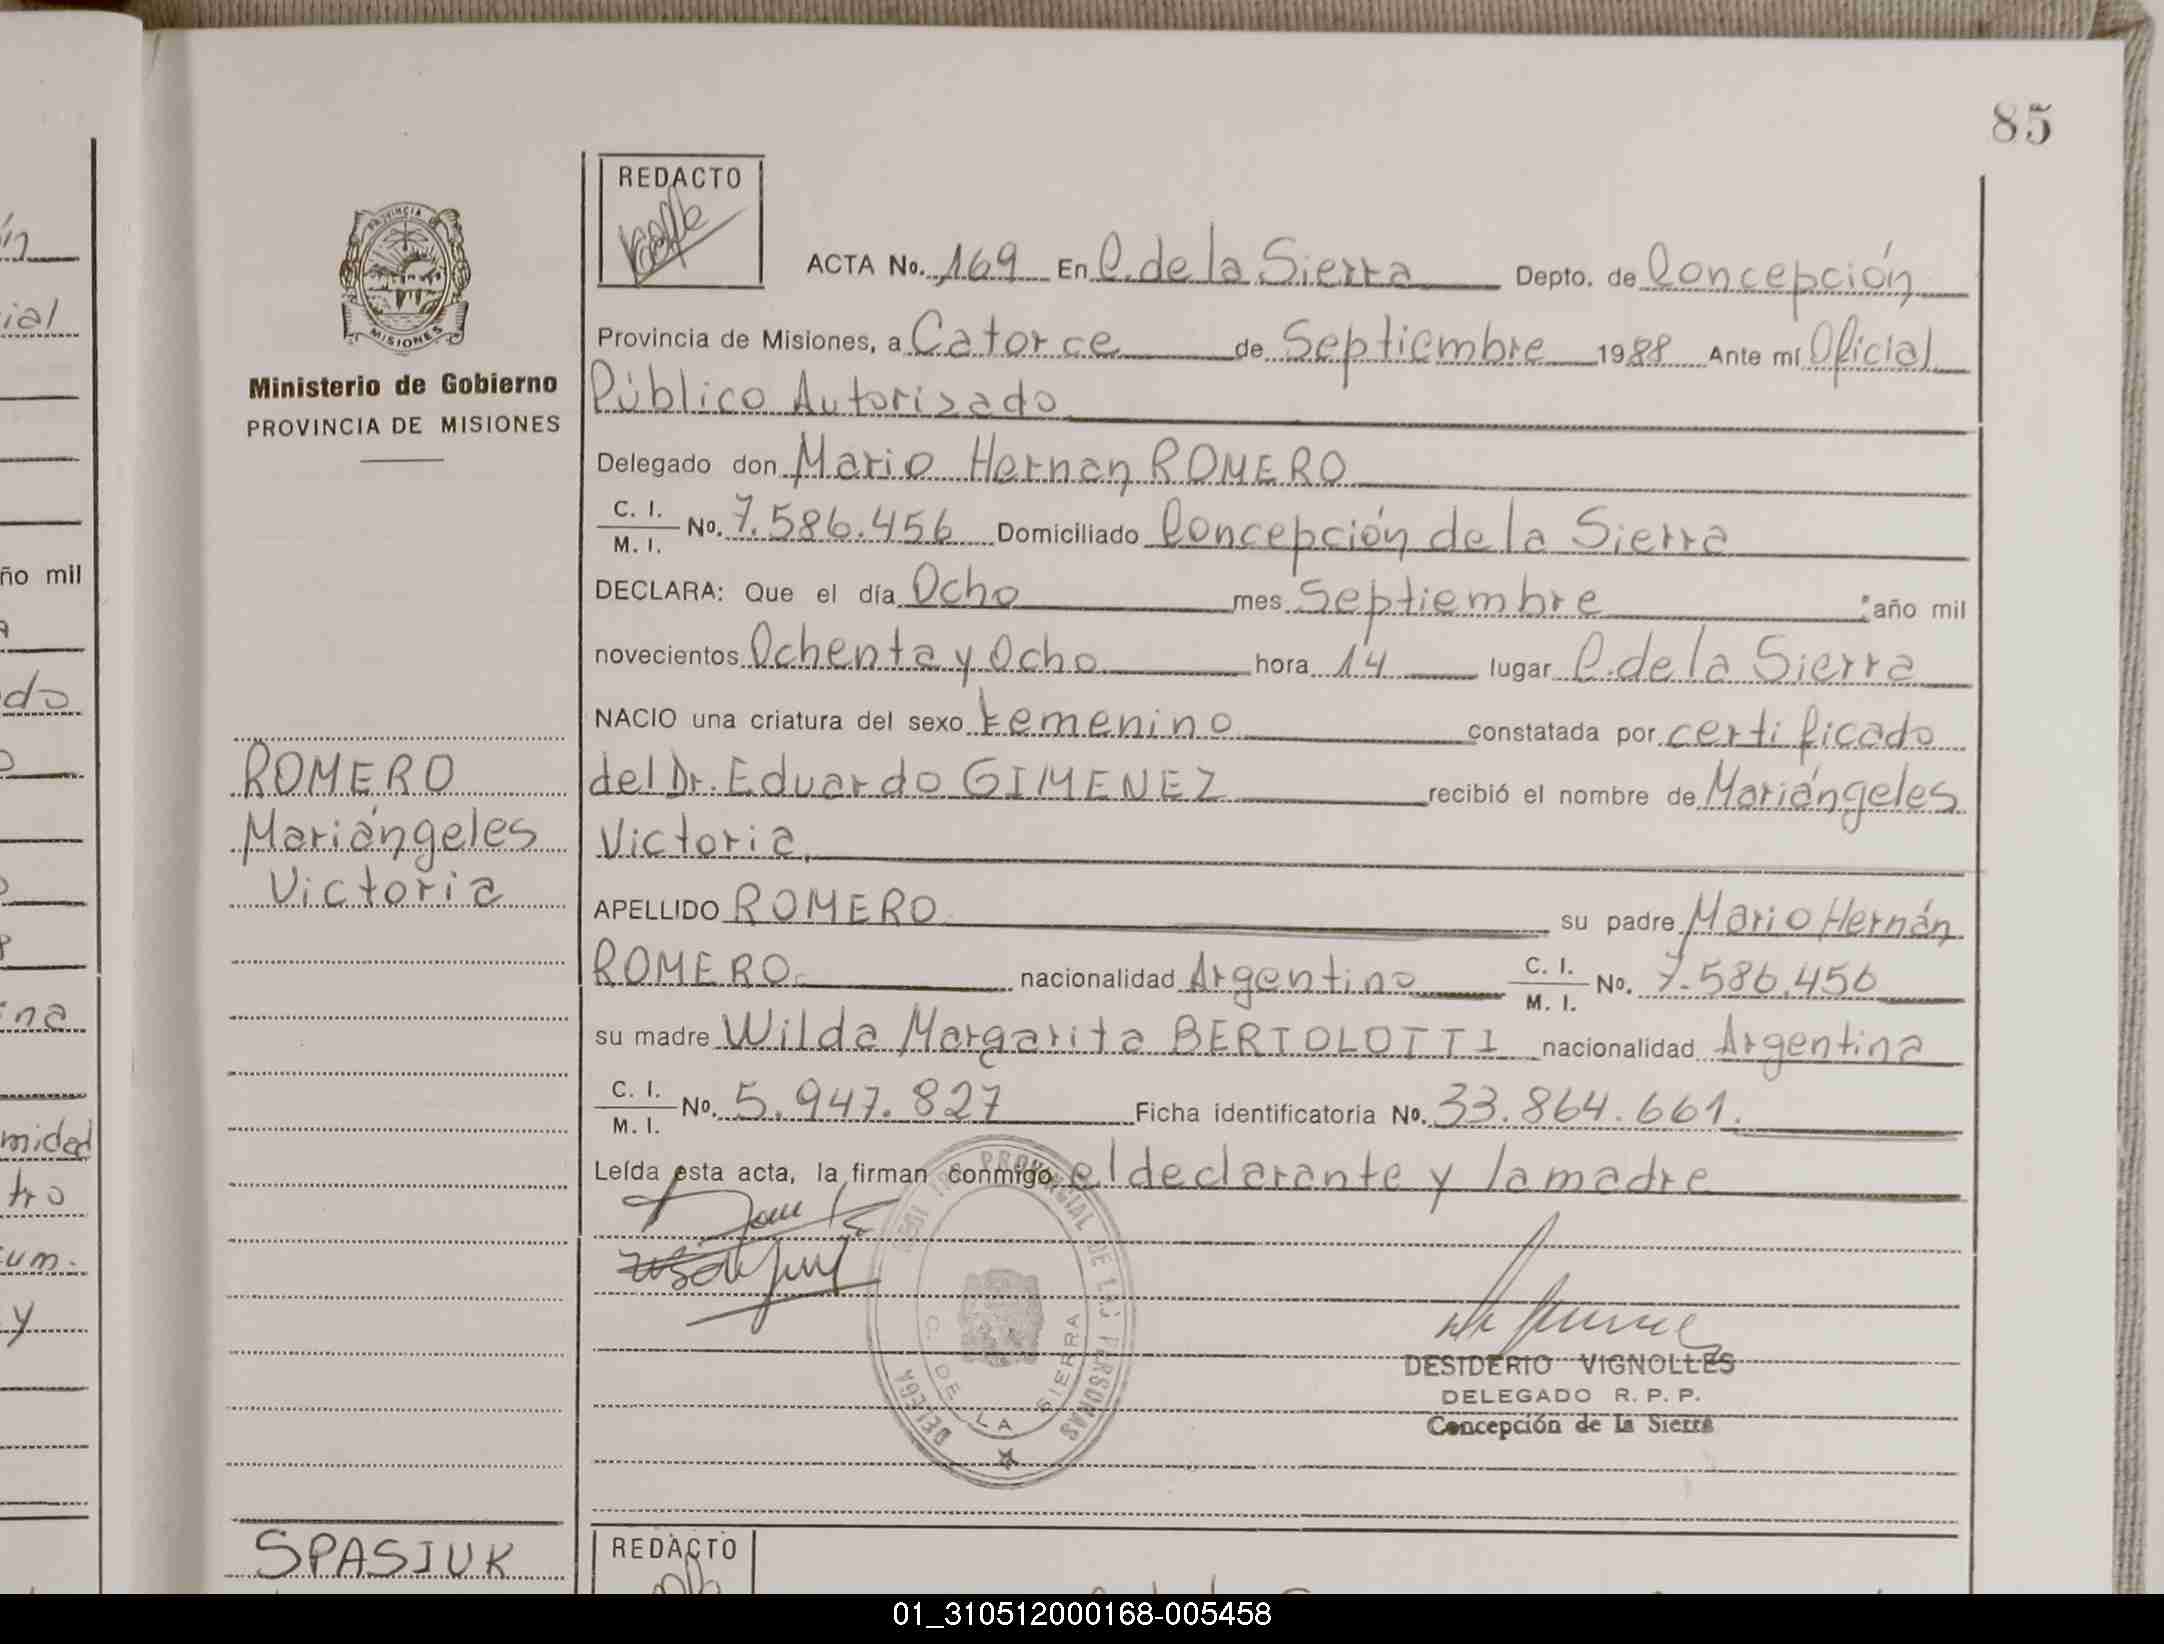 85
REDACTO
PROVINCIA
MISIONES
Ministerio de Gobierno
PROVINCIA DE MISIONES
ROMERO
Mariángeles
Victoria
ACTA No. 169 En C. de la Sierra Depto. de Concepción
Provincia de Misiones, a Catorce de Septiembre 1988 Ante mí Oficial
Público Autorizado
Delegado don Mario Hernan ROMERO
C. I.
M. I. No. 7.586.456 Domiciliado Concepción de la Sierra
DECLARA: Que el día Ocho mes Septiembre año mil
novecientos Ochenta y Ocho hora 14 lugar C. de la Sierra
NACIO una criatura del sexo Femenino constatada por certificado
del Dr. Eduardo GIMENEZ recibió el nombre de Mariángeles
Victoria.
APELLIDO ROMERO su padre Mario Hernán
ROMERO nacionalidad Argentino C. I. M. I. No. 7.586.456
su madre Wilda Margarita BERTOLOTTI nacionalidad Argentina
C. I.
M. I. No. 5.947.827 Ficha identificatoria No. 33.864.661.
Leída esta acta, la firman conmigo, el declarante y la madre
PROVINCIAL DE LAS PERSONAS
C. DE LA SIERRA
DESIDERIO VIGNOLLES
DELEGADO R. P. P.
Concepción de la Sierra
SPASIUK
REDACTO
ial
ño mil
do
ina
midad
tro
um.
y
01_310512000168-005458